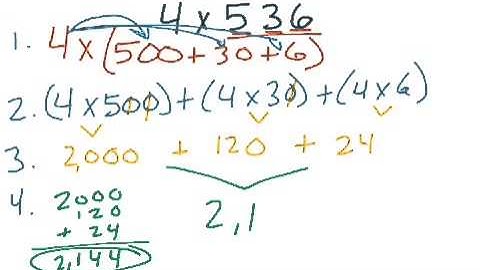 4 x 536
1. 4 x (500 + 30 + 6)
2. (4 x 500) + (4 x 30) + (4 x 6)
3. 2,000 + 120 + 24
2,1
4. 2000
120
+ 24
2,144